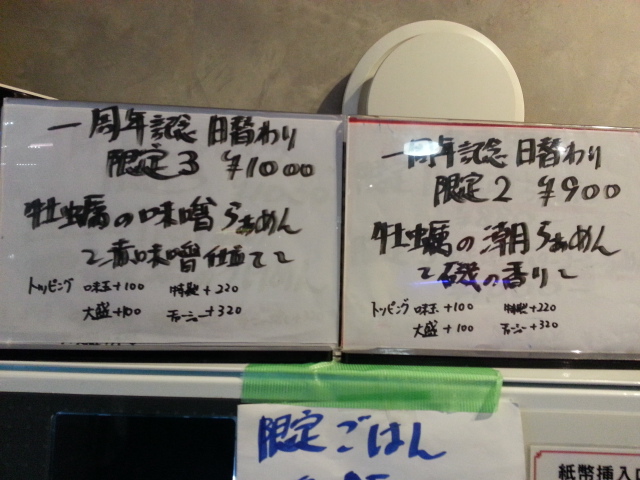 一周年記念 日替わり
限定3 ¥1000
牡蠣の味噌らぁめん
～赤味噌仕立て～
トッピング 味玉+100 特製+220
大盛+100 チャーシュー+320
一周年記念 日替わり
限定2 ¥900
牡蠣の潮らぁめん
～磯の香り～
トッピング 味玉+100 特製+220
大盛+100 チャーシュー+320
限定ごはん
紙幣挿入口